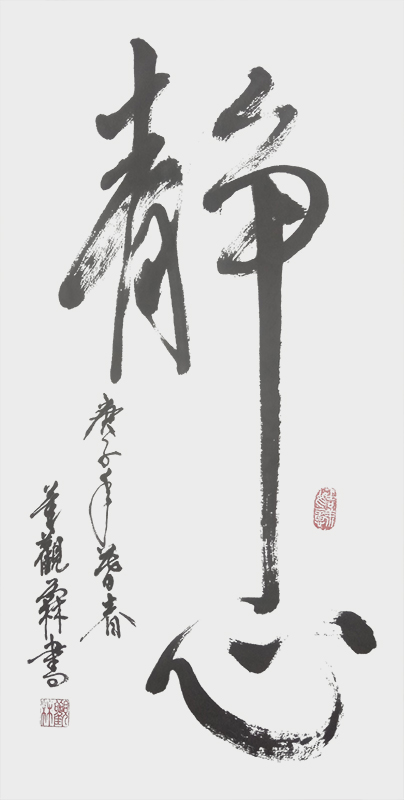 静心
庚子年暮春
觀霖書